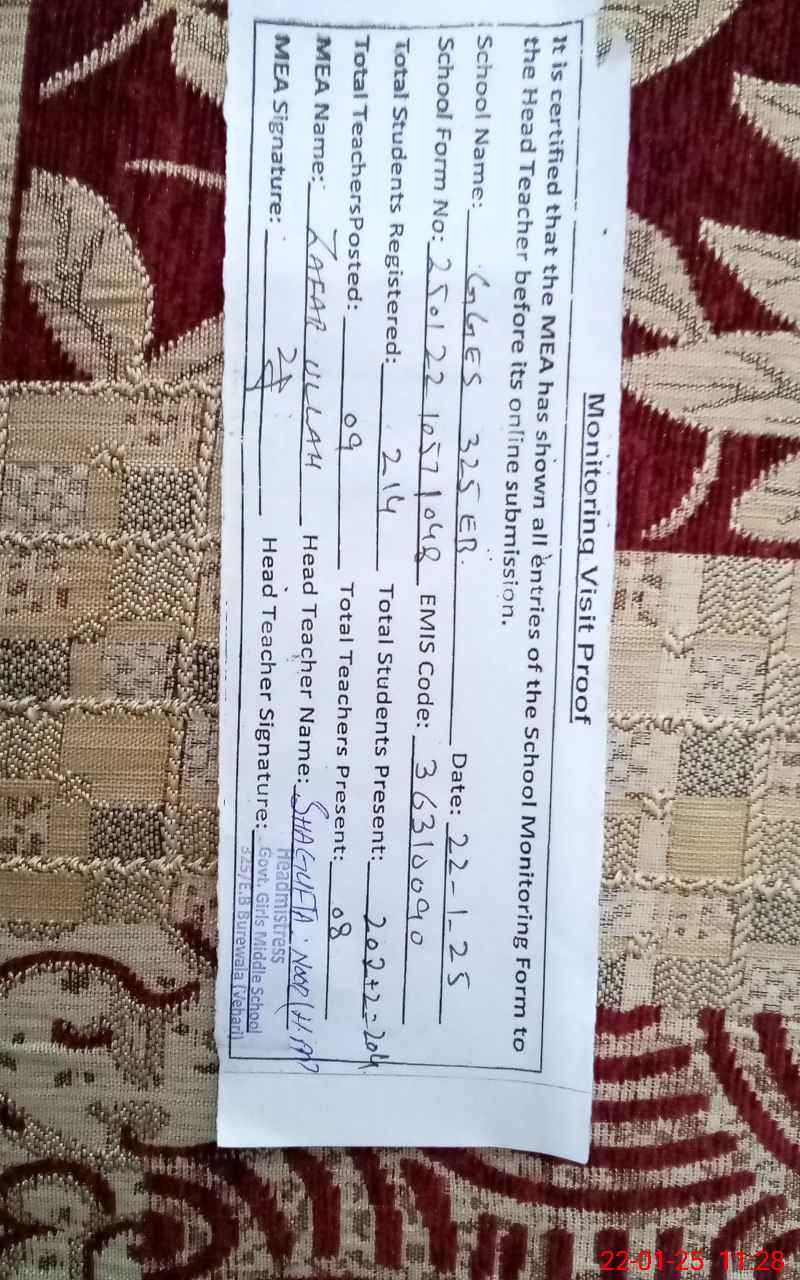 Monitoring Visit Proof
It is certified that the MEA has shown all entries of the School Monitoring Form to
the Head Teacher before its online submission.
School Name: GGES 325 EB. Date: 22-1-25
School Form No: 250122 10571048 EMIS Code: 36310090
Total Students Registered: 214 Total Students Present: 202+2=204
Total TeachersPosted: 09 Total Teachers Present: 08
MEA Name: ZAFAR ULLAH Head Teacher Name: SHAGUFTA NOOR (H.M)
MEA Signature: Head Teacher Signature:
Headmistress
Govt. Girls Middle School
325/E.B Burewala (Vehari)
22-01-25 11:28